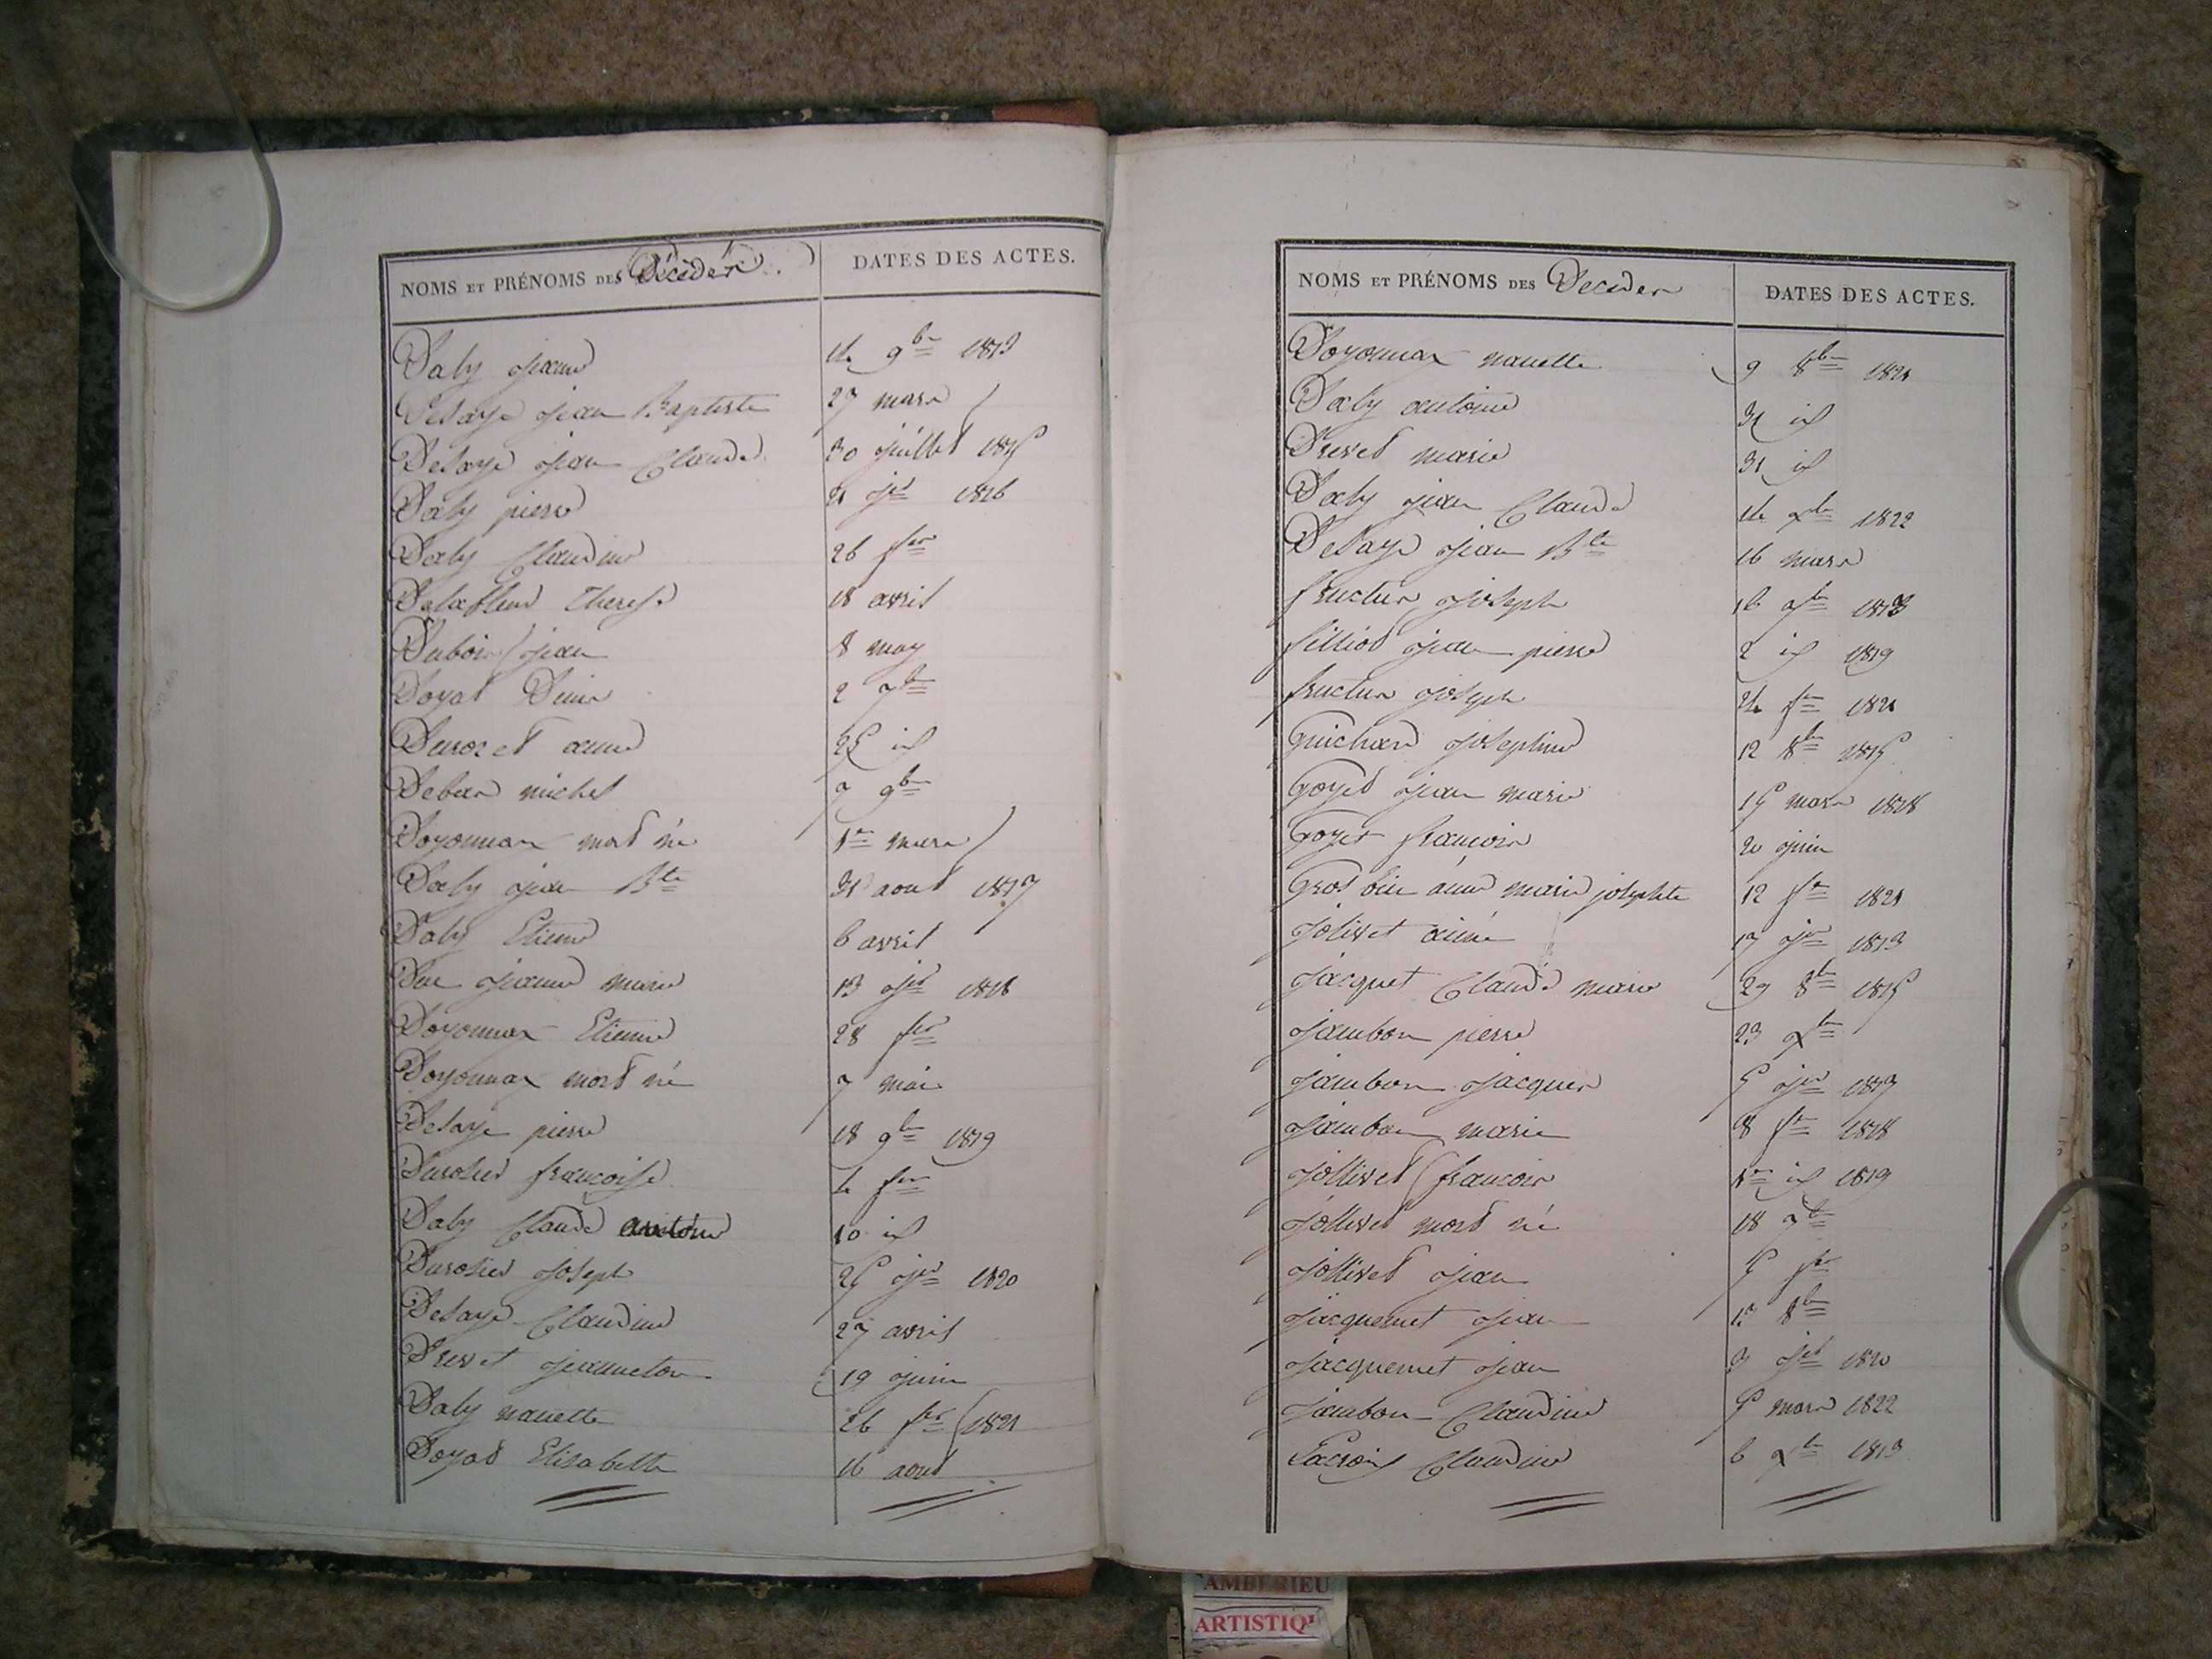 NOMS ET PRÉNOMS DES Décédés. DATES DES ACTES.
Daly jeanne 14 9bre 1813
Delaye jean Baptiste 27 mars
Delaye jean Claude 30 juillet 1815
Daly pierre 21 jer 1816
Daly Claudine 26 fer
Therese 18 avril
Dubois jean 8 may
Doyat Denis 2 7bre
anne 25 id
michel 7 9bre
Doyonnax mort né 1er mars
Daly jean Bte 31 aout 1817
Daly Etienne 6 avril
Duc jeanne marie 13 jet 1818
Doyonnax Etienne 28 fer
Doyonnax mort né 7 mai
Delaye pierre 18 9bre 1819
françoise 4 fer
Daly Claude antoine 10 id
joseph 25 jer 1820
Delaye Claudine 27 avril
Drevet jeanneton 19 juin
Daly nanette 26 fer 1821
Doyat Elisabeth 16 aout
NOMS ET PRÉNOMS DES Décédés DATES DES ACTES.
Doyonnax nanette 9 8bre 1821
Daly antoine 31 id
Drevet marie 31 id
Daly jean Claude 14 xbre 1822
Delaye jean Bte 16 mars
fructus joseph 16 1813
filliod jean pierre 2 id 1819
fructus joseph 24 fer 1821
Guichard josephine 12 8bre 1815
Goyet jean marie 15 mars 1818
Goyet françois 20 juin
Gros marie josephte 12 fer 1821
jolivet aimé 17 jer 1813
jacquet Claude marie 29 8bre 1815
jambon pierre 23 xbre
jambon jacques 5 jer 1817
jambon marie 8 fer 1818
jollivet françois 1er id 1819
jollivet mort né 18 7bre
jollivet jean 5 fer
jacquemet jean 8bre
jacquemet jean 1820
jambon Claudine 5 mars 1822
Lacroix Claudine 6 xbre 1813
AMBERIEU
ARTISTIQ